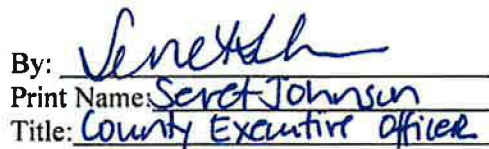 By:
Print Name: Seret Johnson
Title: County Executive Officer